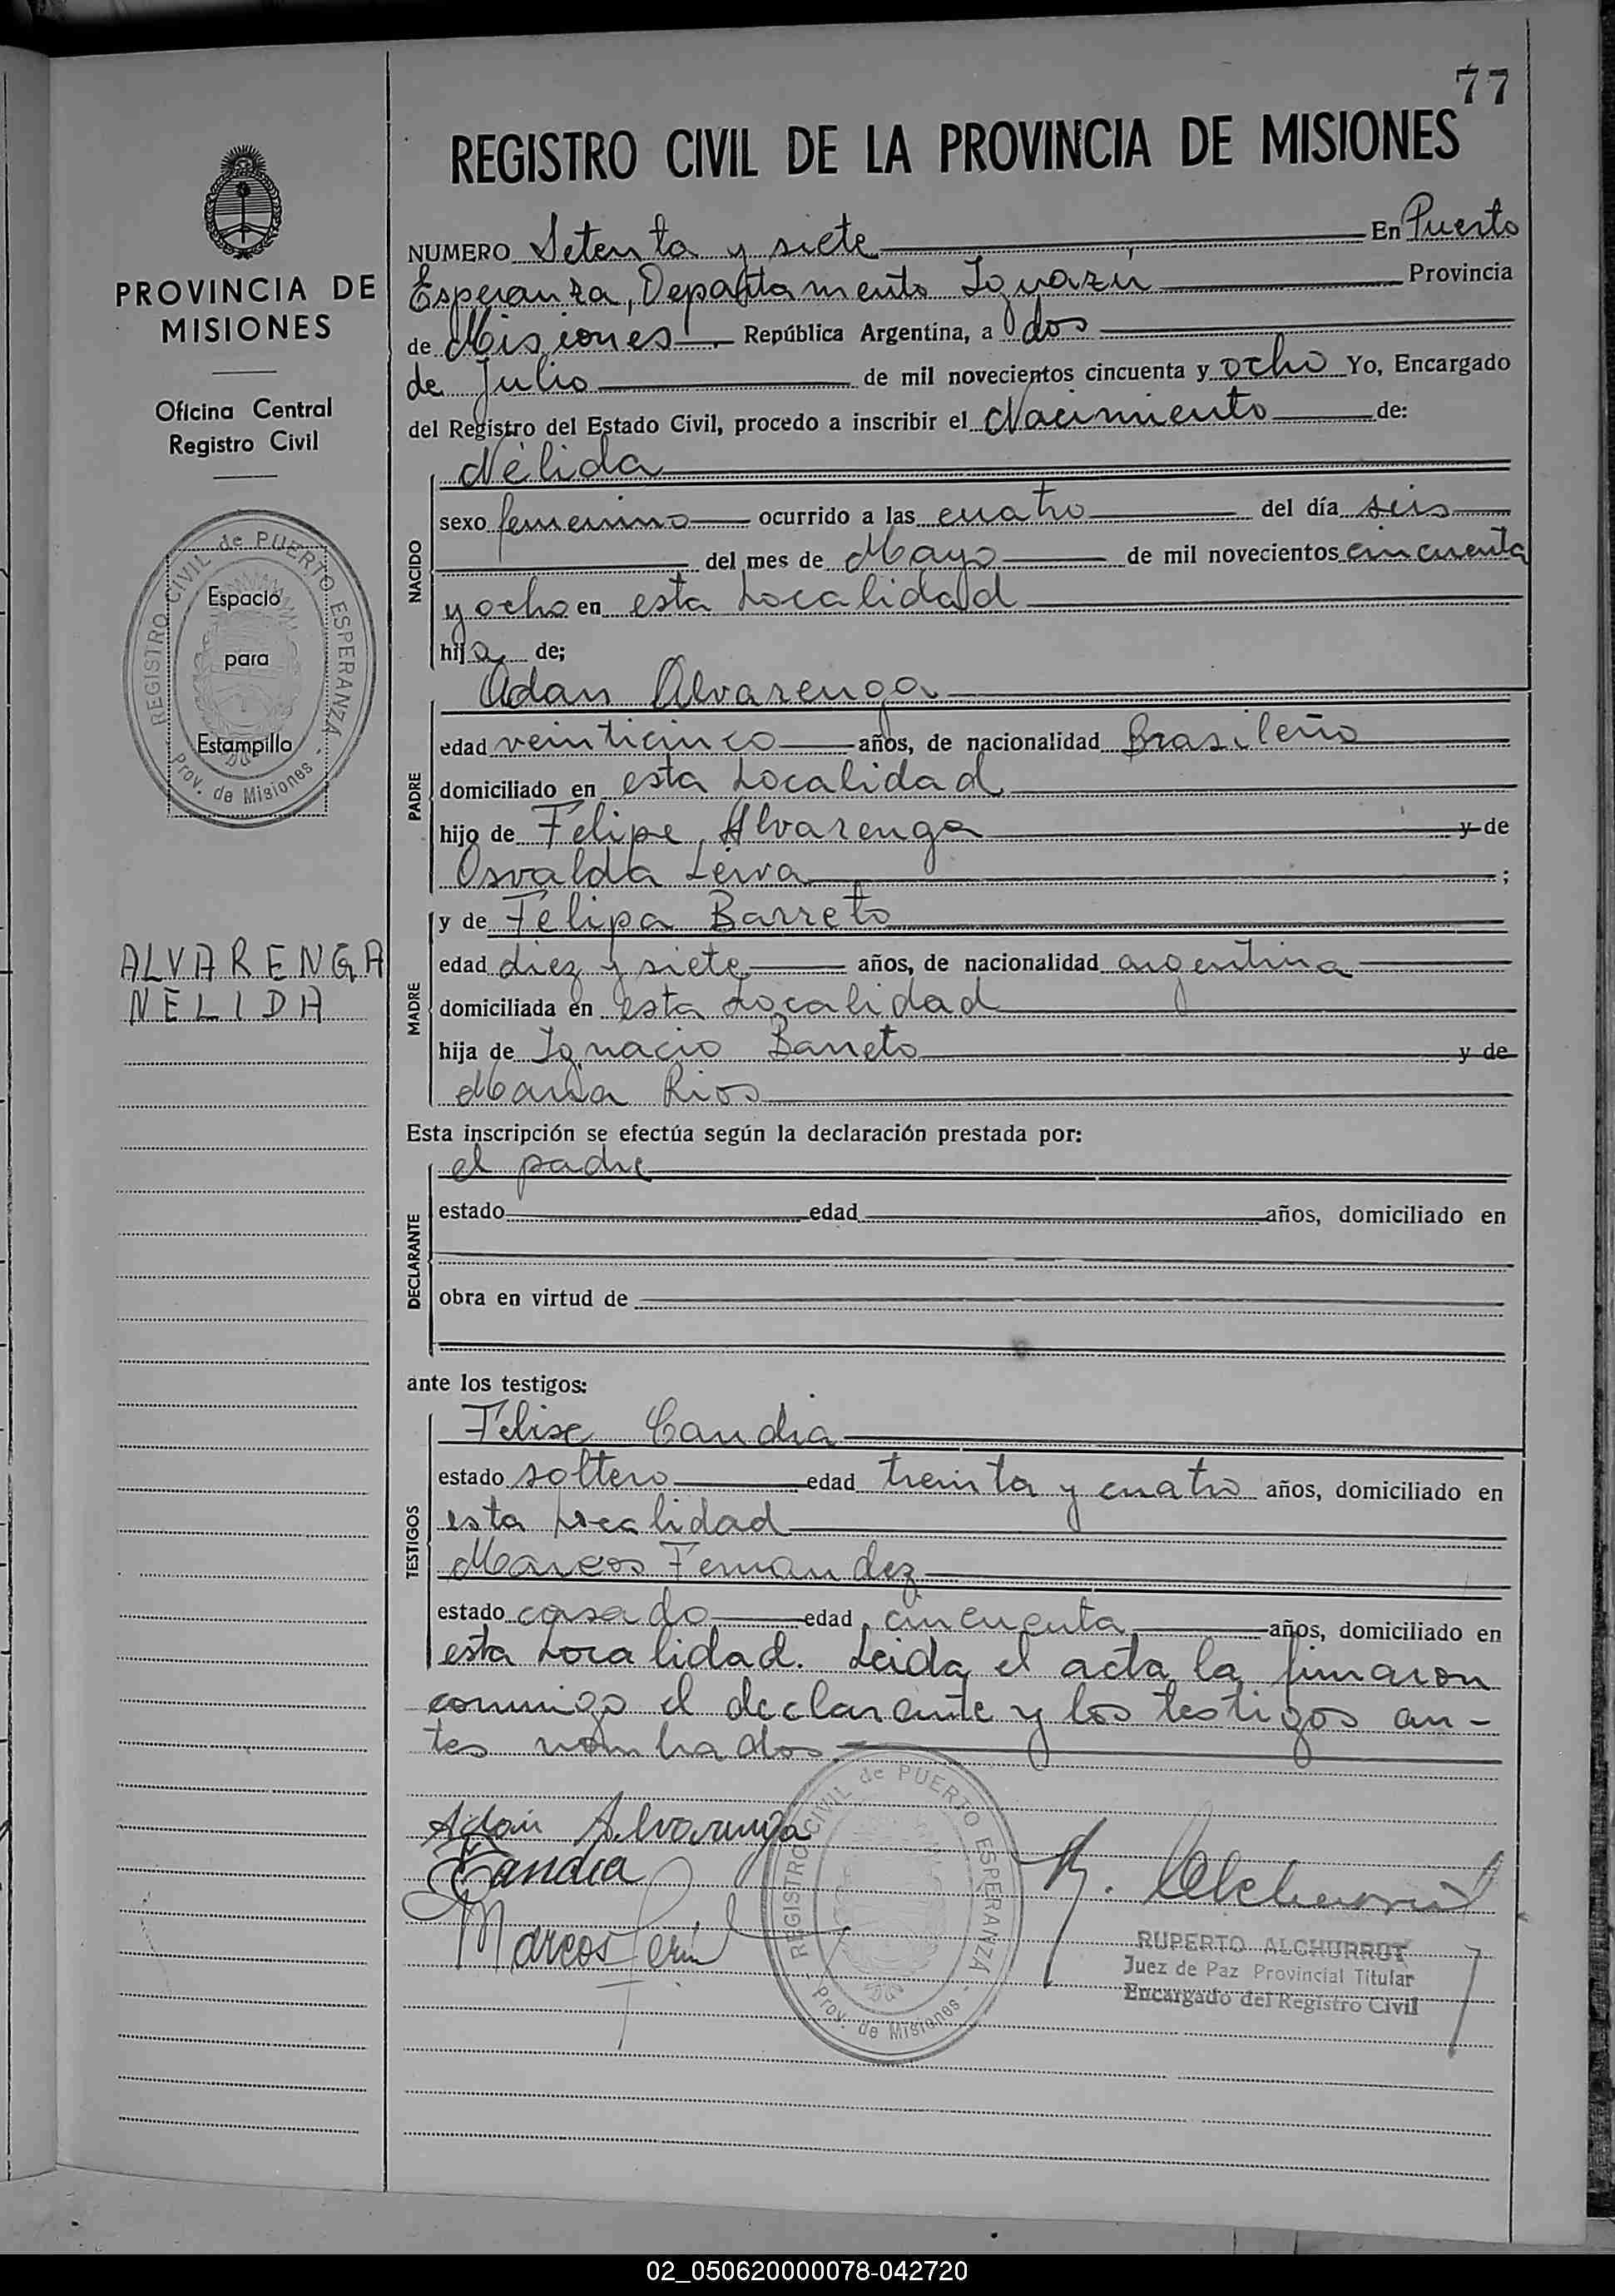 77
REGISTRO CIVIL DE LA PROVINCIA DE MISIONES
PROVINCIA DE
MISIONES
Oficina Central
Registro Civil
REGISTRO CIVIL de PUERTO ESPERANZA
Prov. de Misiones
Espacio
para
Estampilla
ALVARENGA
NELIDA
NUMERO Setenta y siete En Puerto
Esperanza, Departamento Iguazú Provincia
de Misiones República Argentina, a dos
de Julio de mil novecientos cincuenta y ocho Yo, Encargado
del Registro del Estado Civil, procedo a inscribir el Nacimiento de:
NACIDO
Nélida
sexo femenino ocurrido a las cuatro del día seis
del mes de Mayo de mil novecientos cincuenta
y ocho en esta Localidad
hija de;
PADRE
Adan Alvarenga
edad veinticinco años, de nacionalidad Brasileño
domiciliado en esta Localidad
hijo de Felipe Alvarenga y de
Osvalda Leiva ;
MADRE
y de Felipa Barreto
edad diez y siete años, de nacionalidad argentina
domiciliada en esta Localidad
hija de Ignacio Barreto y de
Maria Rios
Esta inscripción se efectúa según la declaración prestada por:
DECLARANTE
el padre
estado edad años, domiciliado en
obra en virtud de
ante los testigos:
TESTIGOS
Felise Candia
estado soltero edad treinta y cuatro años, domiciliado en
esta localidad
Marcos Fernandez
estado casado edad cincuenta años, domiciliado en
esta Localidad. Leida el acta la firmaron
conmigo el declarante y los testigos an-
tes nombrados
Adan Alvarenga
Candia
Marcos Fern
REGISTRO CIVIL de PUERTO ESPERANZA
Prov. de Misiones
RUPERTO ALCHURRUT
Juez de Paz Provincial Titular
Encargado del Registro Civil
02_050620000078-042720